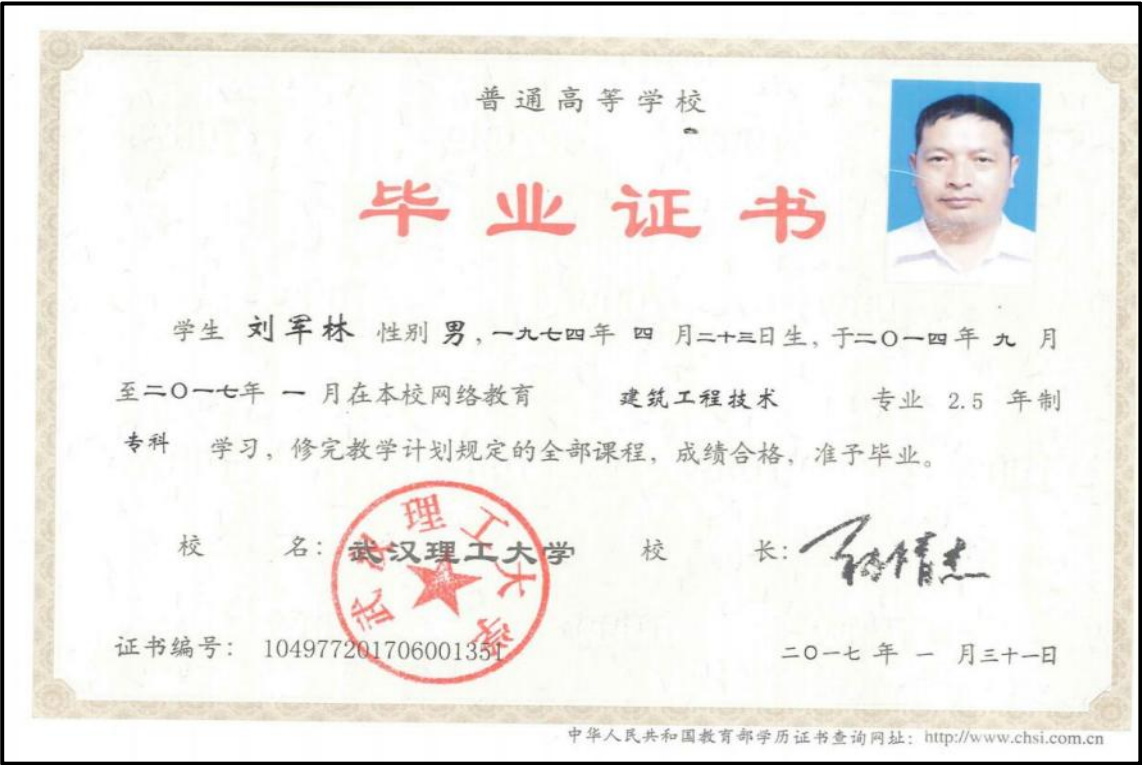 普通高等学校
毕业证书
学生 刘军林 性别 男，一九七四年 四 月二十三日生，于二〇一四年 九 月
至二〇一七年 一 月在本校网络教育 建筑工程技术 专业 2.5 年制
专科 学习，修完教学计划规定的全部课程，成绩合格，准予毕业。
校 名：武汉理工大学 校 长：
武汉理工大学
证书编号： 104977201706001351 二〇一七 年 一 月三十一日
中华人民共和国教育部学历证书查询网址：http://www.chsi.com.cn